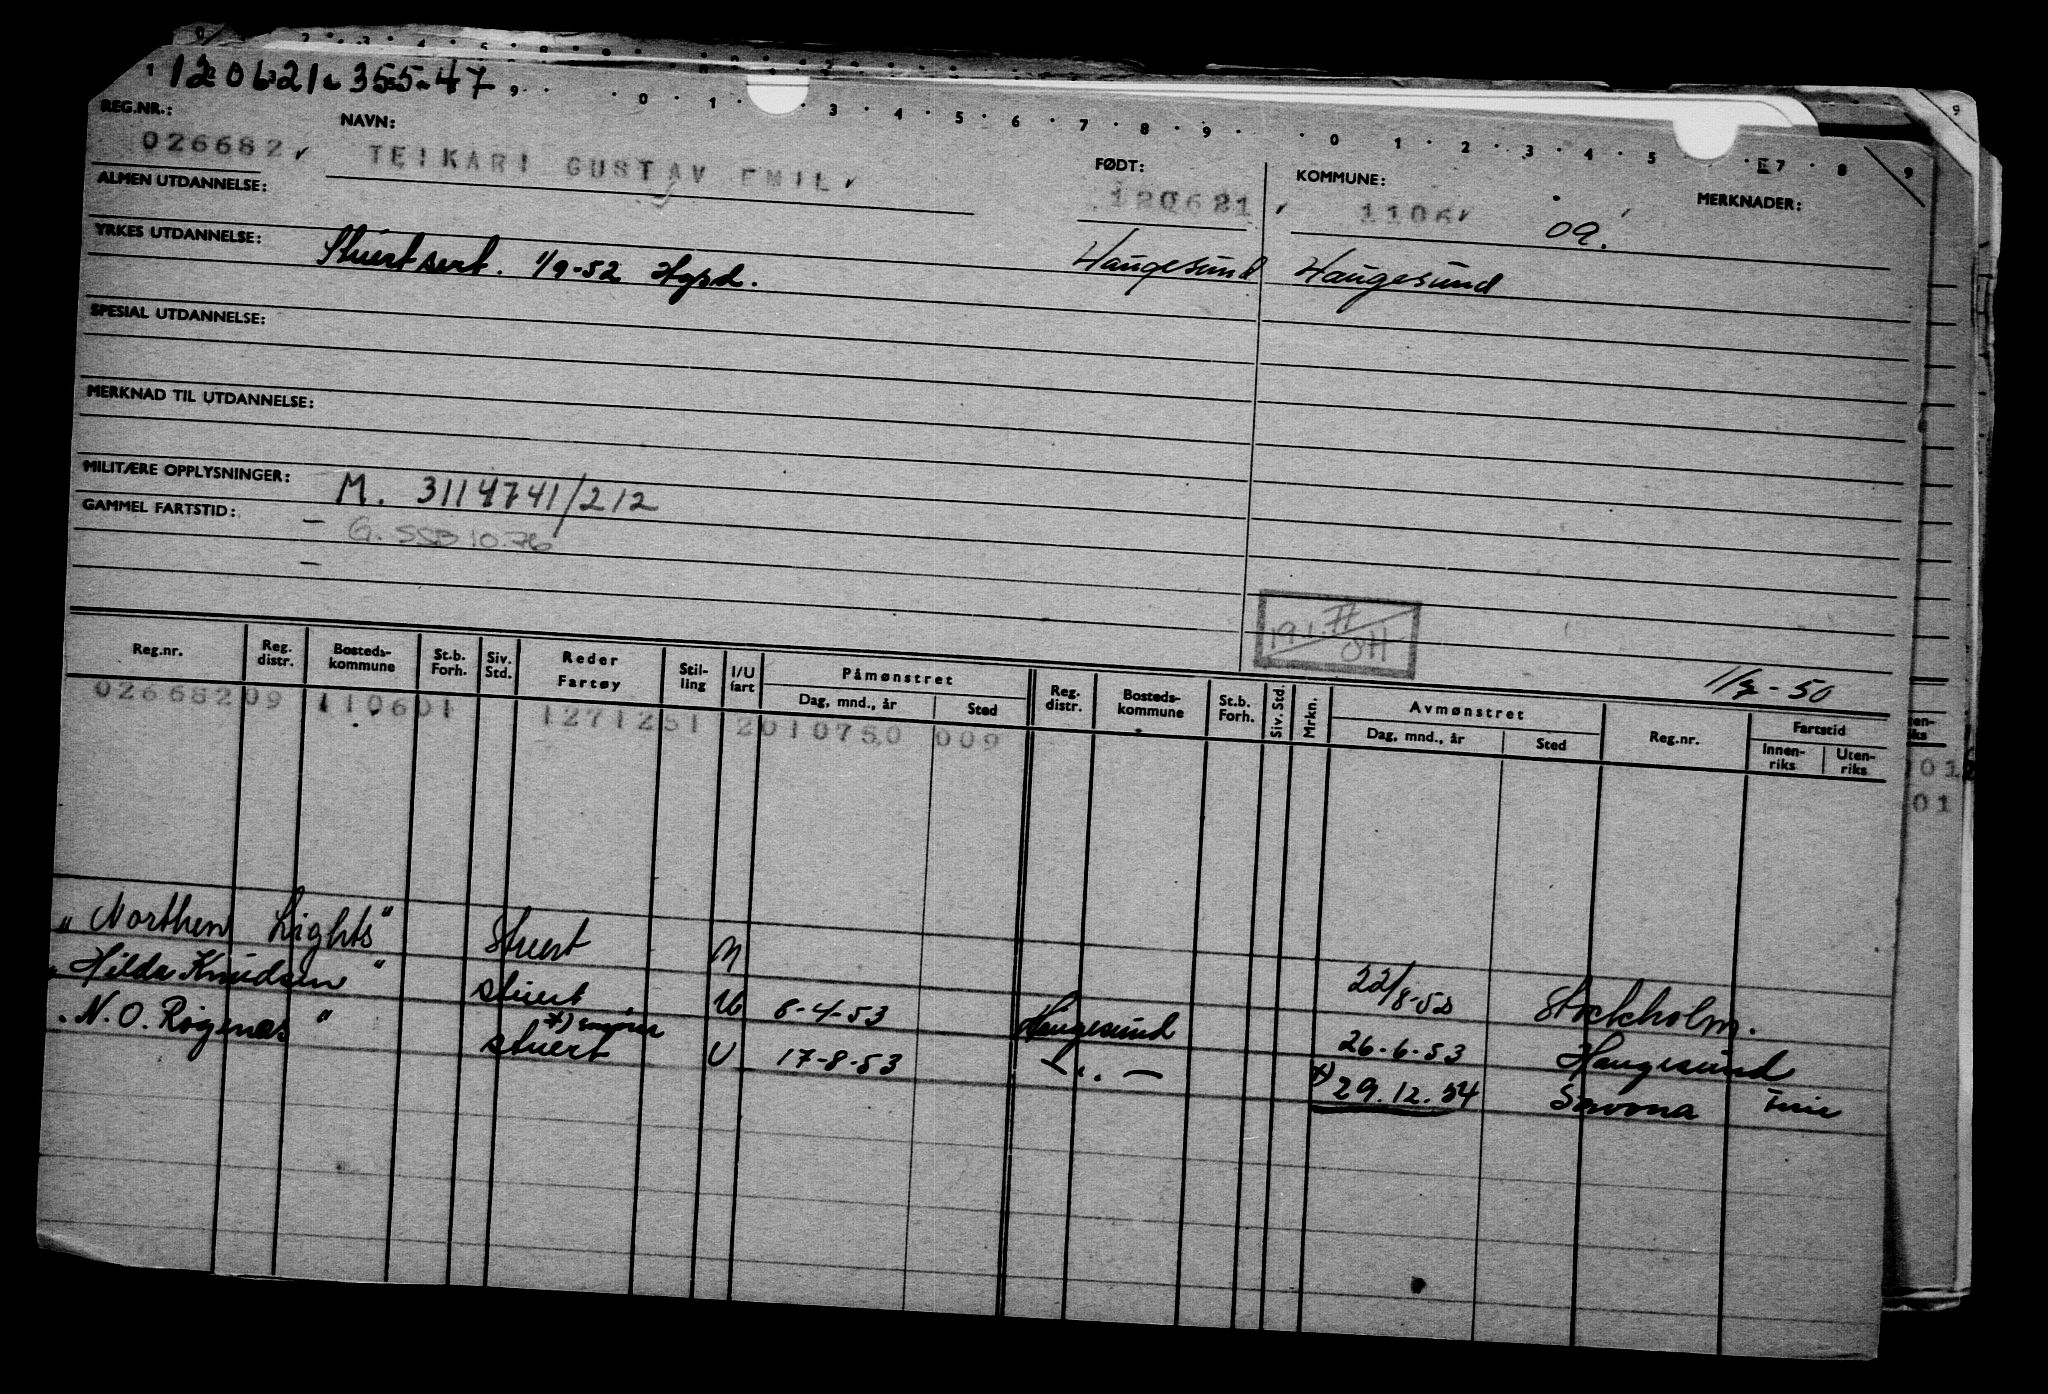 120621 35547
REG.NR.: NAVN: FØDT: KOMMUNE: MERKNADER:
026682 TEIKARI GUSTAV EMIL 120621 1106 09.
ALMEN UTDANNELSE:
YRKES UTDANNELSE: Stuert sert. 1/9-52 Hgsd. Haugesund Haugesund
SPESIAL UTDANNELSE:
MERKNAD TIL UTDANNELSE:
MILITÆRE OPPLYSNINGER: M. 3114741/212
GAMMEL FARTSTID: G. SSB 10.76
19.1.77
OH
-50
Reg.nr. Reg. distr. Bosteds-kommune St.b. Forh. Siv. Std. Reder Fartøy Stil-ling I/U fart Påmønstret Dag, mnd., år Sted Reg. distr. Bosteds-kommune St.b. Forh. Siv. Std. Mrkn. Avmønstret Dag, mnd., år Sted Reg.nr. Fartstid Innen-riks Uten-riks
026682 09 110601 1271251 201075 0 009
"Northen Lights" Stuert 22/8-52 Stockholm.
"Hilda Knudsen" stuert U 8-4-53 Haugesund 26-6-53 Haugesund
"N.O. Røgenæs" stuert U 17-8-53 — " — *) 29.12.54 Savona